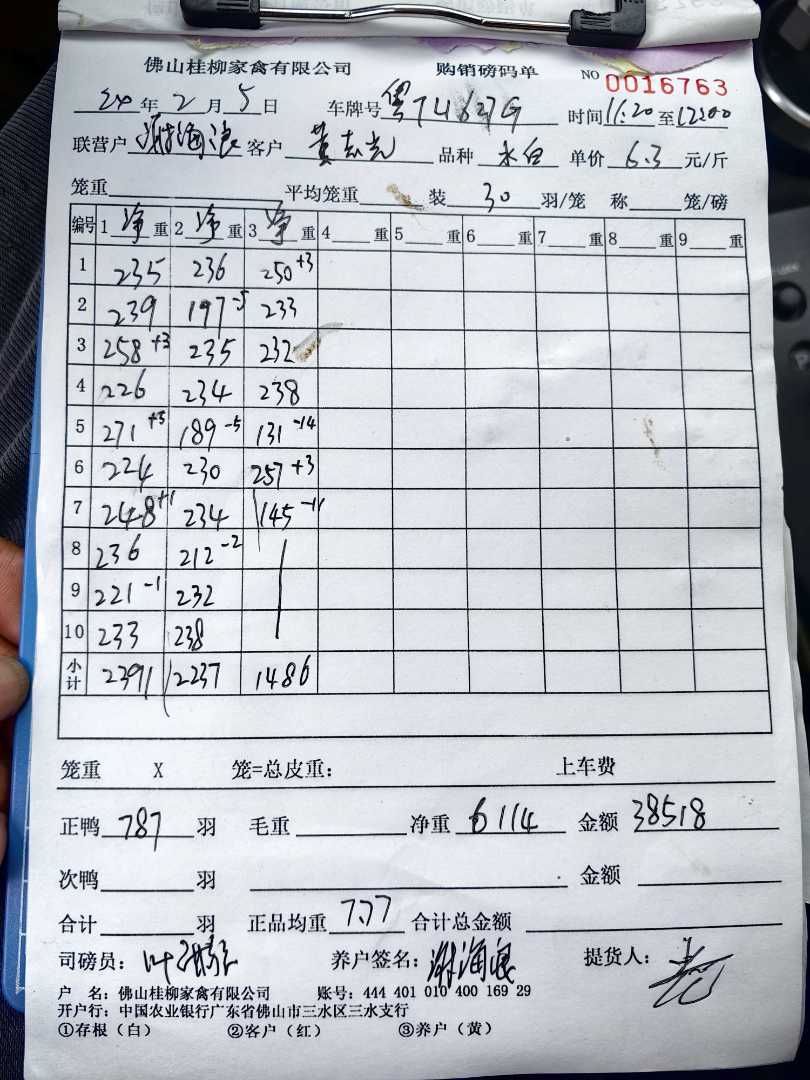 佛山桂柳家禽有限公司 购销磅码单 NO 0016763
24 年 2 月 5 日 车牌号 粤TU627G 时间 11:20 至 12:00
联营户 谢海浪 客户 黄志光 品种 水白 单价 6.3 元/斤
笼重 平均笼重 装 30 羽/笼 称 笼/磅
编号 1 净 重 2 净 重 3 净 重 4 重 5 重 6 重 7 重 8 重 9 重
1 235 236 250 +3
2 239 197 -5 233
3 258 +3 235 232
4 226 234 238
5 271 +3 189 -5 131 -14
6 224 230 257 +3
7 248 +1 234 145 -11
8 236 212 -2
9 221 -1 232
10 233 238
小计 2391 2237 1486
笼重 X 笼=总皮重: 上车费
正鸭 787 羽 毛重 净重 6114 金额 38518
次鸭 羽 金额
合计 羽 正品均重 7.77 合计总金额
司磅员: 养户签名: 谢海浪 提货人:
户 名: 佛山桂柳家禽有限公司 账号: 444 401 010 400 169 29
开户行: 中国农业银行广东省佛山市三水区三水支行
①存根（白） ②客户（红） ③养户（黄）